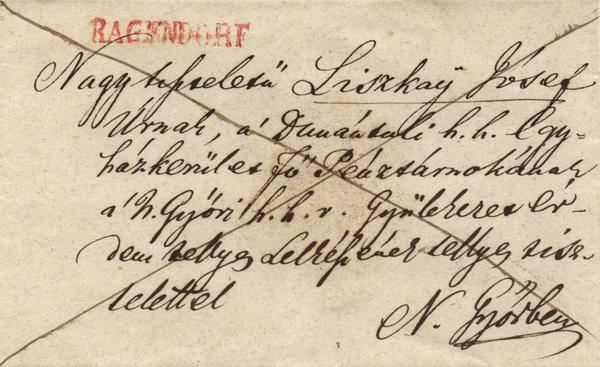 RAGENDORF
Nagy tiszteletű Liszkaÿ Jósef
Úrnak, a' Dunántuli h. h. Egy-
házkerület Fő Pénztárnokának
a' N. Győri h. h. v. Gyülekezet ér-
dem tellyes Lelkészének tellyes tisz-
telettel
N. Győrben